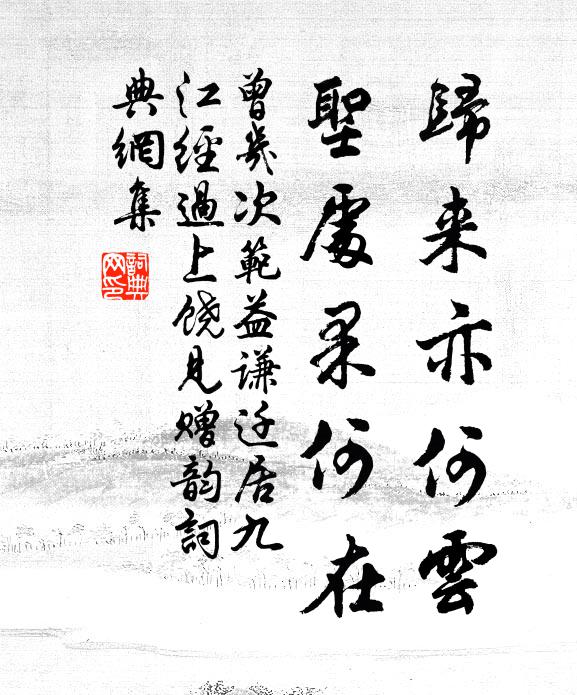 歸来亦何雲
聖處果何在
曾幾次範益謙迁居九
江經過上饒見贈韵詞
典網集
詞典網印